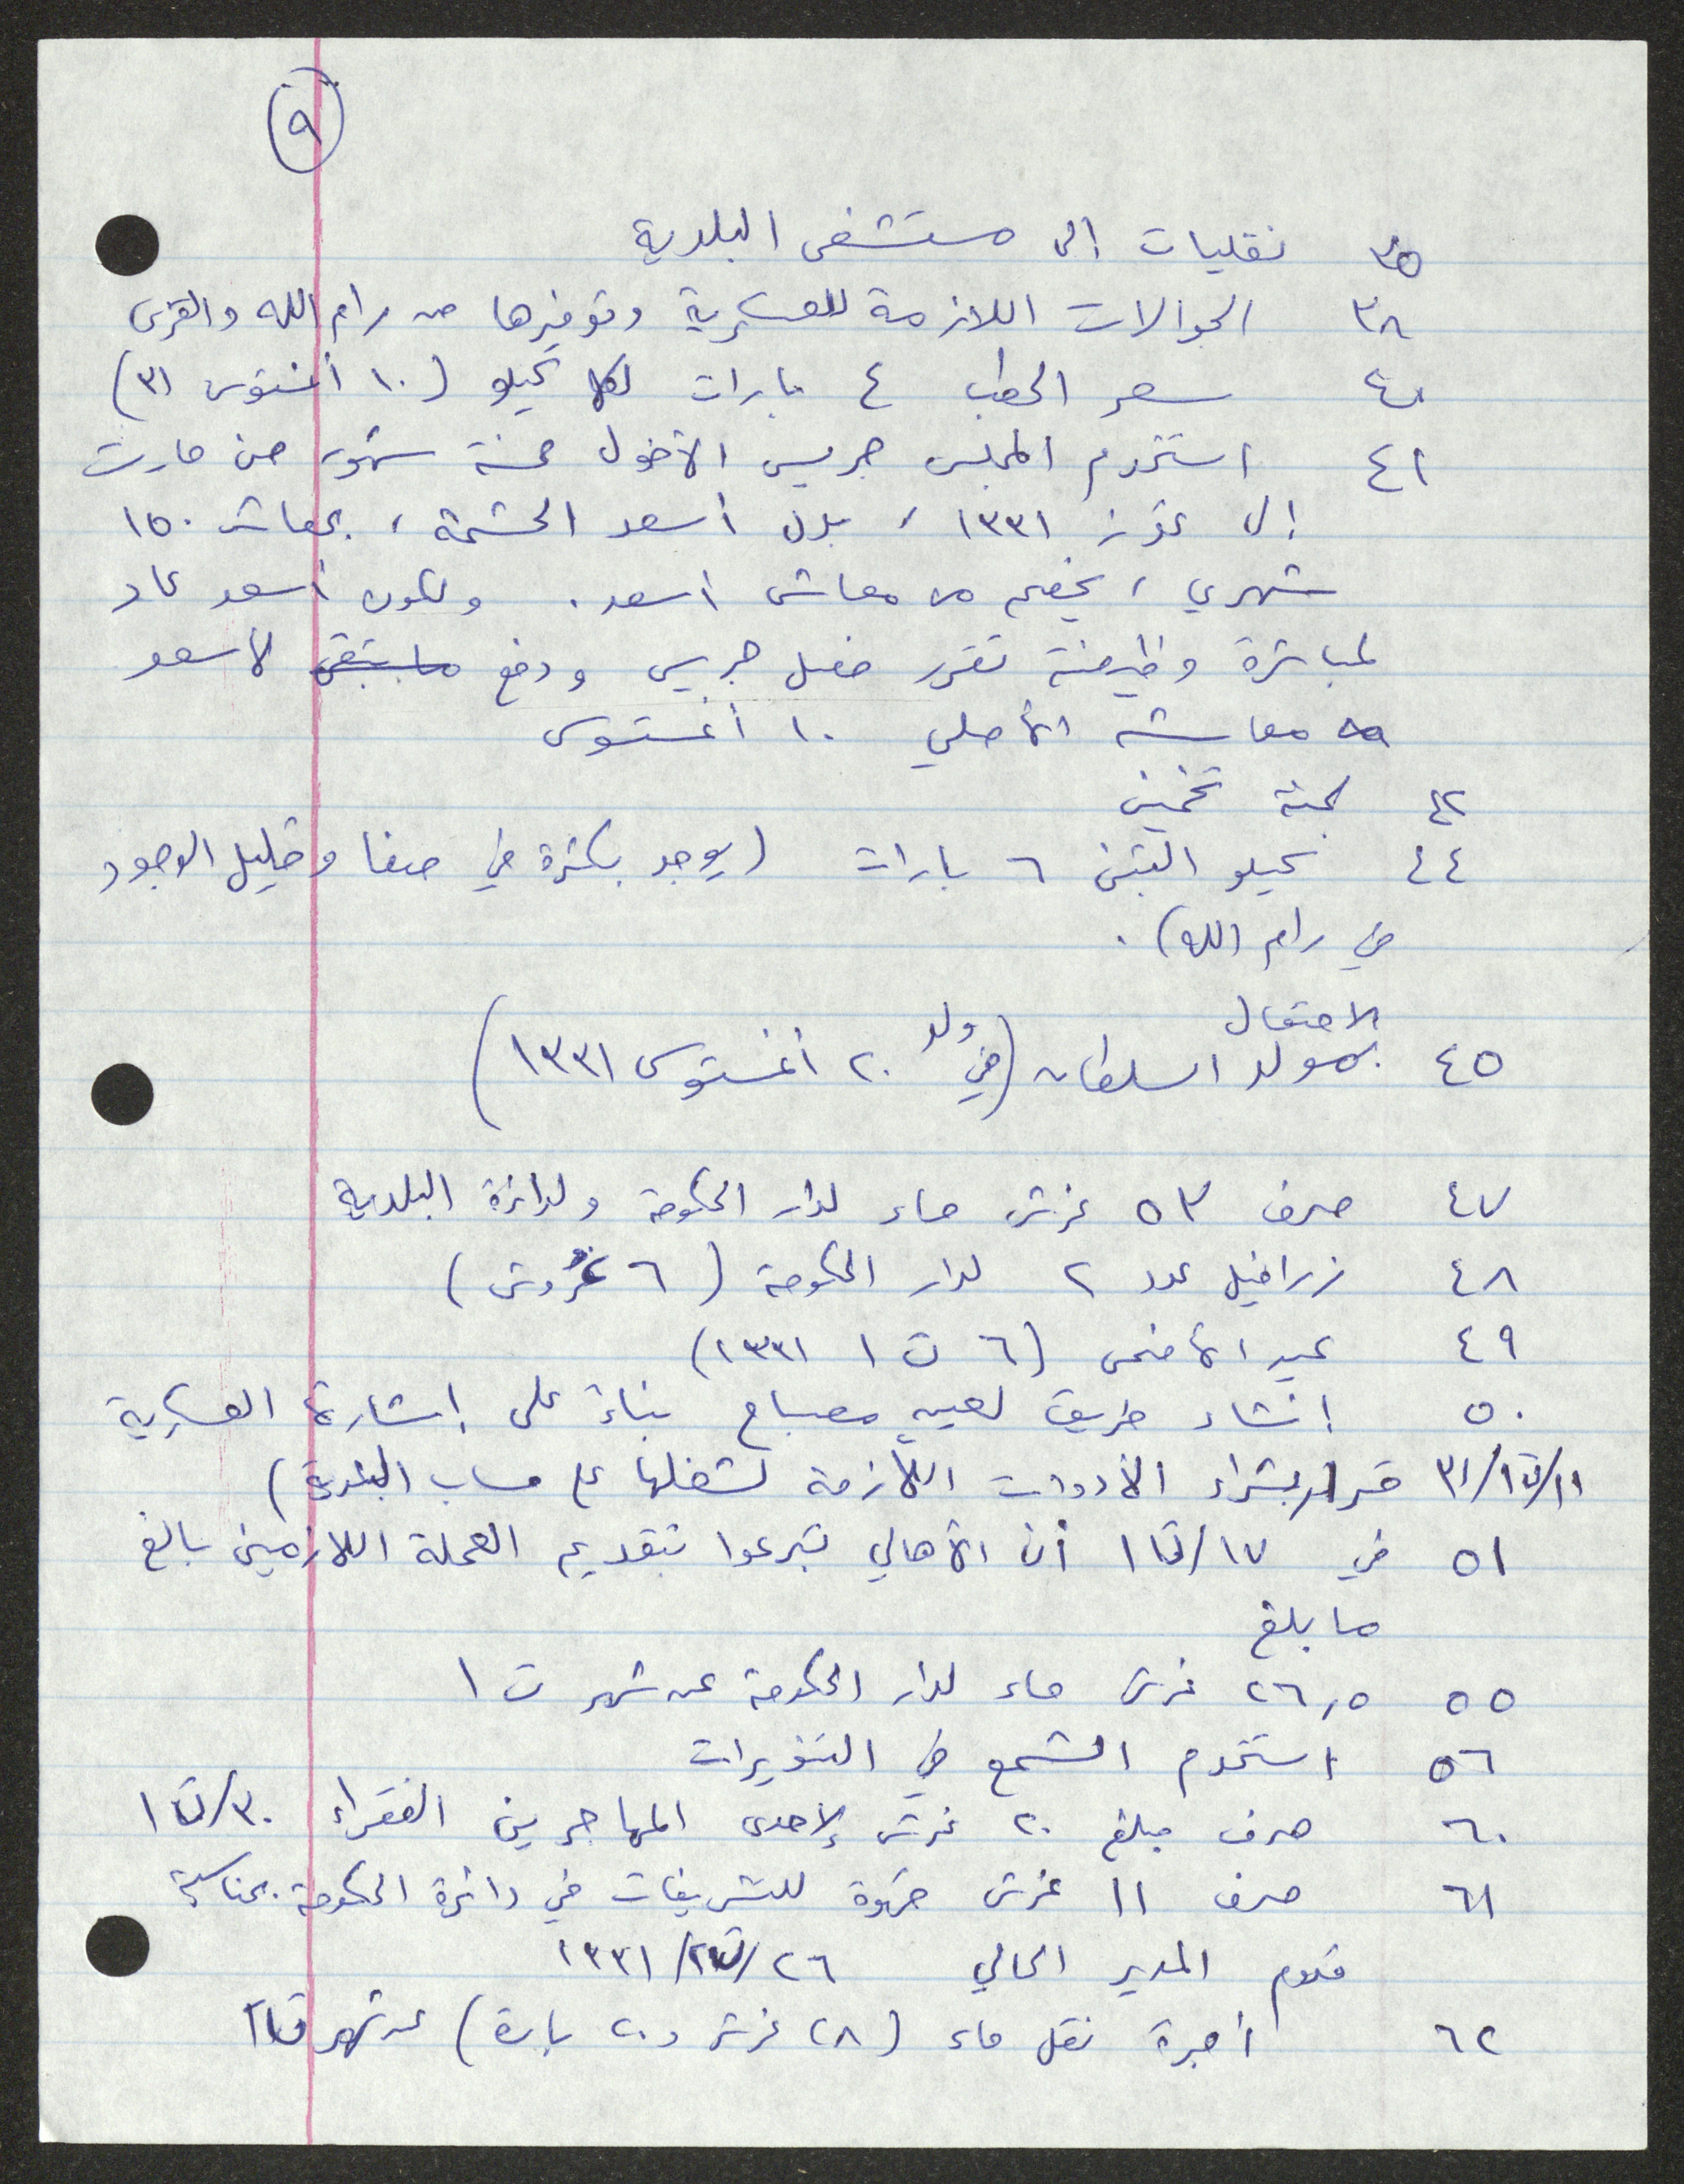 ٩
٣٥ نقليات إلى مستشفى البلدية
٣٨ الجوالات اللازمة للعسكرية وتوفيرها من رام الله والقرى
٤٠ سعر الحطب ٤ بارات لكل كيلو (١٠ أغستوس ٣١)
٤١ استخدم المجلس جريس الأخول خمسة شهور من مارت
إلى تموز ١٣٣١، بدل أسعد الحشمة، بمعاش ١٥٠
شهري، يخصم من معاش أسعد. ولكون أسعد عاد
لمباشرة وظيفته تقرر فصل جريس ودفع ما تبقى لأسعد
معاشه الأصلي ١٠ أغستوس
٤٢ لجنة تخمين
٤٤ كيلو التبن ٦ بارات (يوجد بكثرة في صفا وقليل الوجود
في رام الله).
الاحتفال
٤٥ بمولد السلطان (ولد في ٢٠ أغستوس ١٣٣١)
٤٧ صرف ٥٣ غرش ماء لدار الحكومة ولدائرة البلدية
٤٨ زرافيل عدد ٢ لدار الحكومة (٦ غروش)
٤٩ عيد الأضحى (٦ ت ١ ١٣٣١)
٥٠ إنشاء طريق لعين مصباح بناءً على إشارة العسكرية
١١/ت١/٣١ قرار بشراء الأدوات اللازمة لشغلها على حساب البلدية)
٥١ في ١٧/ت١ أن الأهالي تبرعوا بتقديم العملة اللازمين بالغ
ما بلغ
٥٥ ٢٦,٥ غرش ماء لدار الحكومة عن شهر ت ١
٥٦ استخدم الشمع في التنويرات
٦٠ صرف مبلغ ٢٠ غرش لإحدى المهاجرين الفقراء ٣٠/ت١
٦١ صرف ١١ غرش قهوة للتشريفات في دائرة الحكومة بمناسبة
قدوم المدير الحالي ٢٦/ت٢/١٣٣١
٦٢ أجرة نقل ماء (٢٨ غرش و٢٠ بارة) عن شهر ت٢